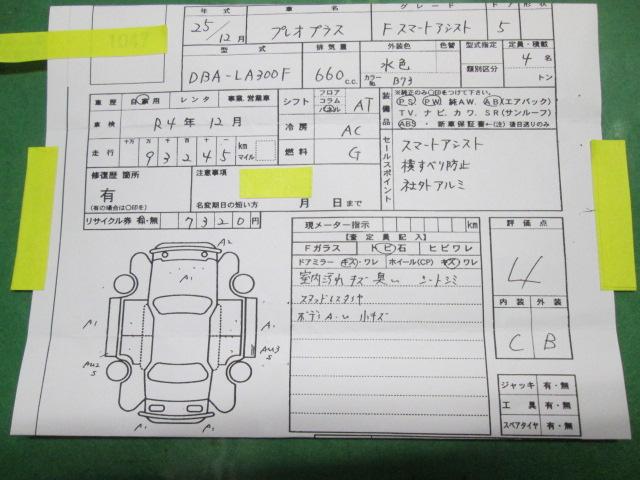 年式 車名 グレード ドア形状
25/12月 プレオプラス Fスマートアシスト 5
型式 排気量 外装色 色替 型式指定 定員・積載
DBA-LA300F 660c.c. 水色 類別区分 4名
カラーNo. B73 トン
車歴 自家用 レンタ 事業、営業車
シフト フロア コラム パネル AT
車検 R4年12月
冷房 AC
走行 十万 万 千 百 十 km マイル
93245
燃料 G
装備品
※純正のみ〇印をつけて下さい。
PS PW 純AW. AB(エアバック)
TV. ナビ. カワ. SR(サンルーフ)
ABS ・新車保証書←(注)後日送りのみ
セールスポイント
スマートアシスト
横すべり防止
社外アルミ
修復歴 箇所
有
(有の場合は〇印を)
注意事項
名変期日の短い方 月 日まで
リサイクル券 有・無 7320円
現メーター指示 km
【査定員記入】
Fガラス トビ石 ヒビワレ
ドアミラー キズ・ワレ ホイール(CP) キズ・ワレ
室内汚れ キズ 臭い シートシミ
スタッドレスタイヤ
ボディA・U 小キズ
評価点
4
内装 外装
C B
ジャッキ 有・無
工具 有・無
スペアタイヤ 有・無
A2
A1
A1
A1
AU2
S
AU3
S
A1
A1